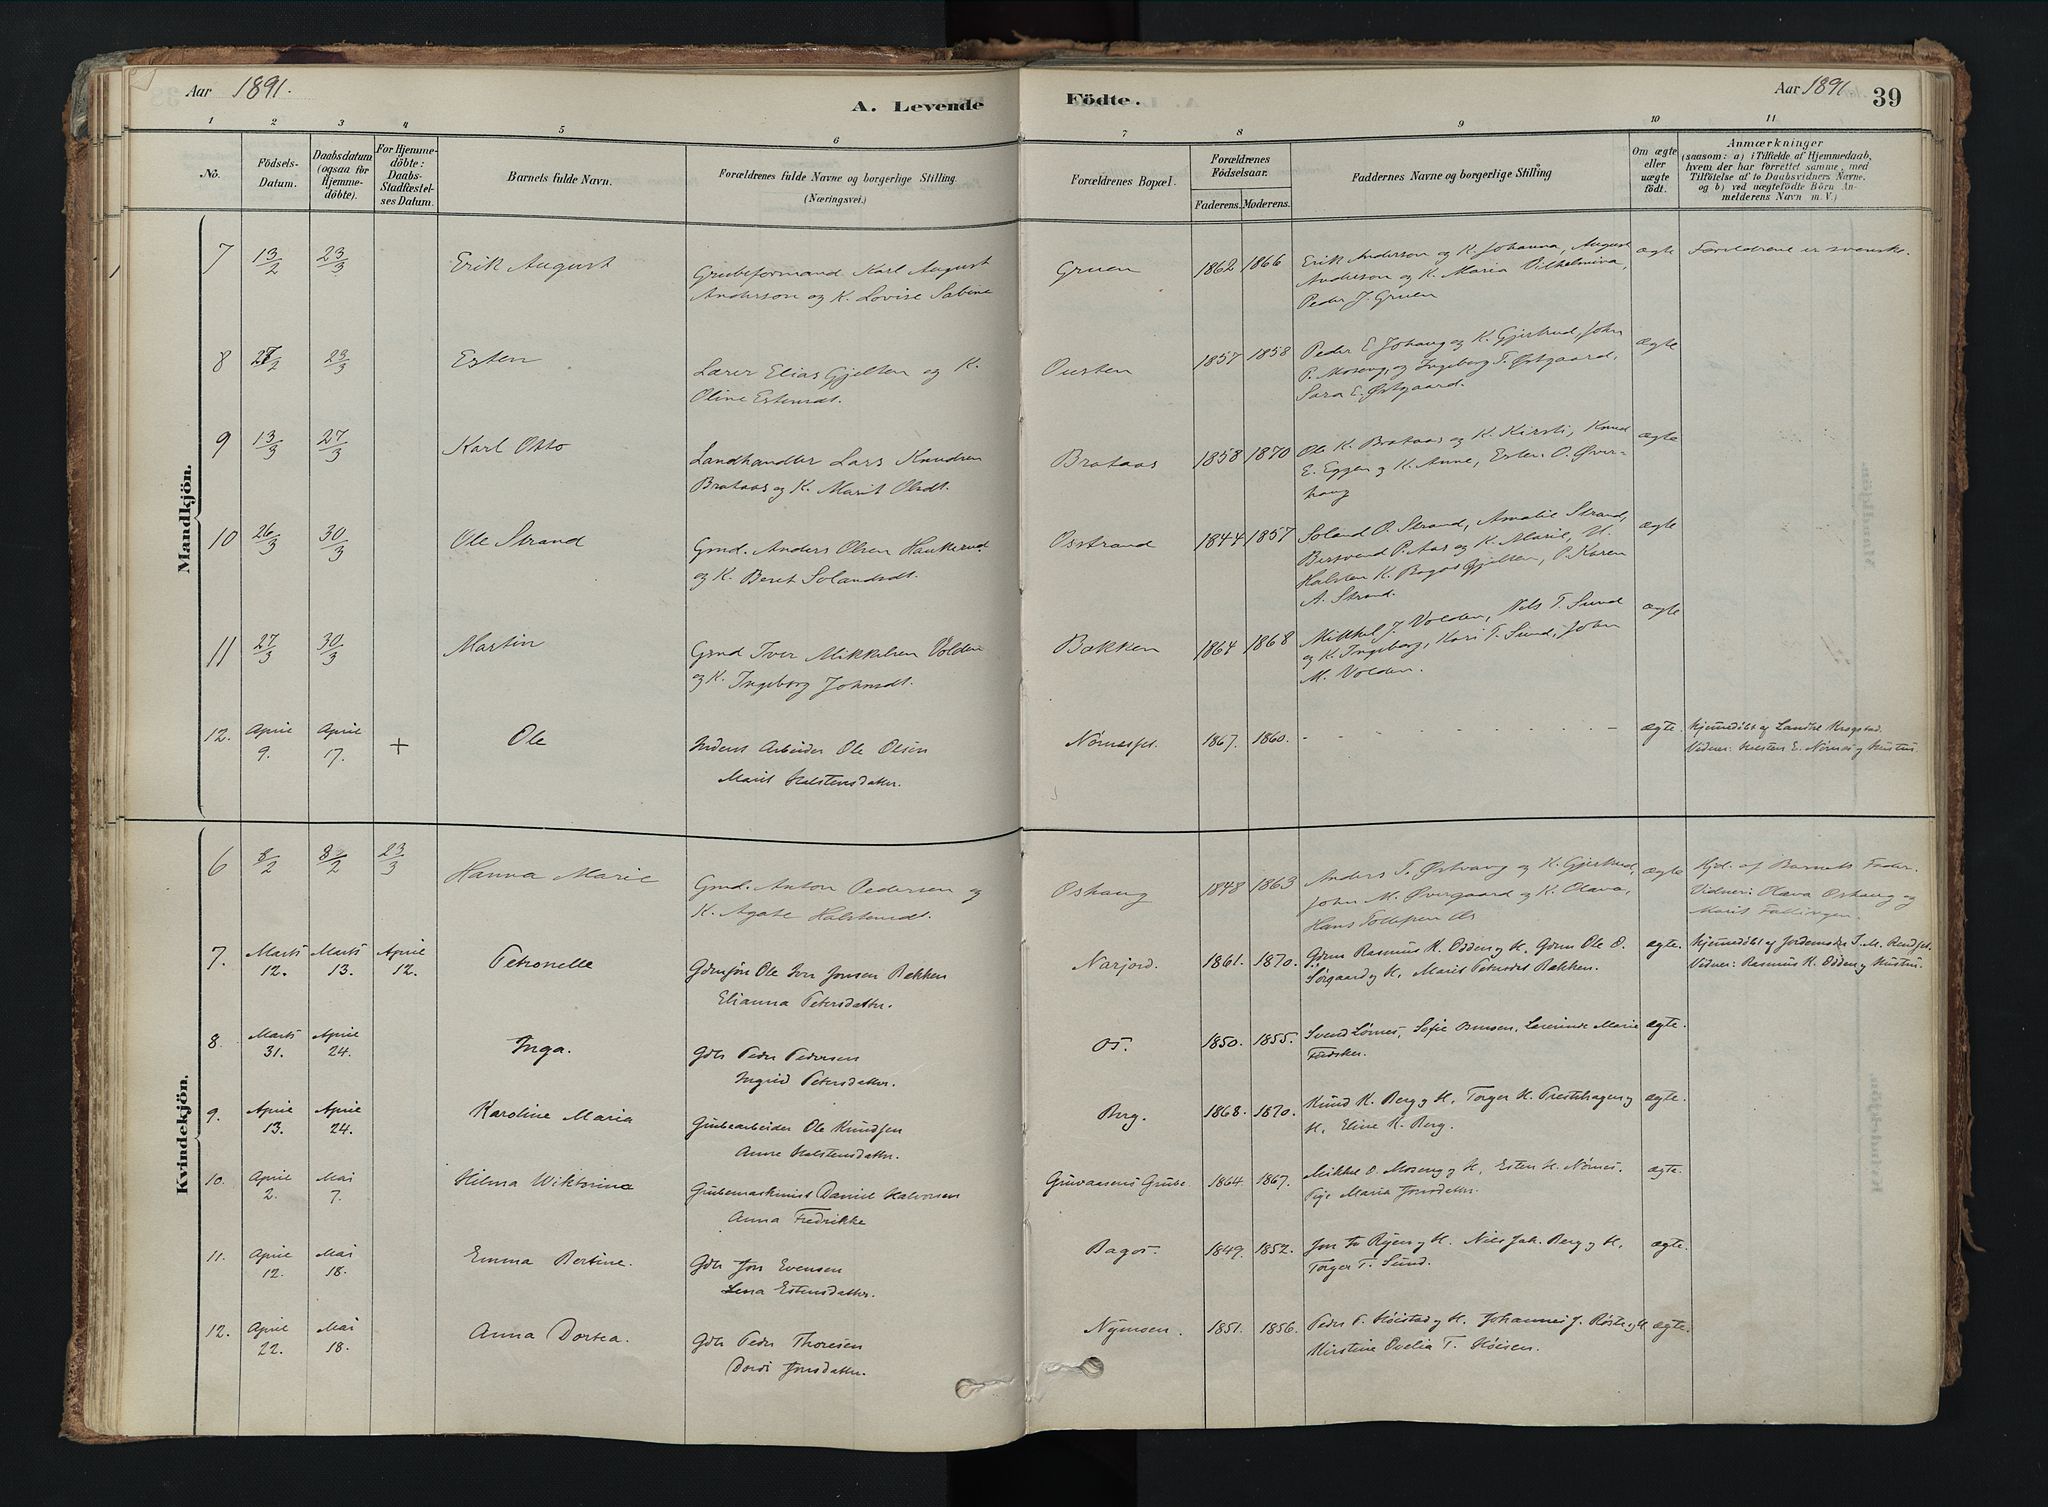 Aar 1891.
A. Levende Födte.
Aar 1891
39
1 2 3 4 5 6 7 8 9 10 11
No.
Födsels-Datum.
Daabsdatum (ogsaa for Hjemme-döbte).
For Hjemme-döbte: Daabs-Stadfæstel-ses Datum.
Barnets fulde Navn.
Forældrenes fulde Navne og borgerlige Stilling.
(Næringsvei.)
Forældrenes Bopæl.
Forældrenes Födselsaar.
Faderens. Moderens.
Faddernes Navne og borgerlige Stilling
Om ægte eller uægte födt.
Anmærkninger
(saasom: a) i Tilfælde af Hjemmedaab,
hvem der har forrettet samme, med
Tilföielse af to Daabsvidners Navne,
og b) ved uægtefödte Börn An-
melderens Navn m. V.)
Mandkjön.
7 13/2 23/3 Erik August
Grubeformand Karl August
Anderson og K. Lovise Sabine
Gruen 1862 1866
Erik Anderson og K. Johanna, August
Anderson og K. Maria Vilhelmina,
Peder J. Gruen
ægte Forældrene er svenske.
8 27/2 23/3 Esten
Lærer Elias Gjelten og K.
Oline Estensdt.
Ousten 1857 1858
Peder E. Johaug og K. Gjertrud, John
P. Moseng, og Ingeborg T. Østgaard,
Sara E. Østgaard.
ægte
9 13/3 27/3 Karl Otto
Landhandler Lars Knudsen
Brataas og K. Marit Olsdt.
Brataas 1858 1870
Ole K. Brataas og K. Kirsti, Knud
E. Eggen og K. Anne, Esten O. Øver-
haug
ægte
10 26/3 30/3 Ole Strand
Gmd. Anders Olsen Haukerud
og K. Beret Solandsdt.
Osstrand 1844 1857
Soland O. Strand, Amalie Strand,
Bersvend P. Aas og K. Marie, U.
Halsten K. Bagos Gjelten, P. Karen
A. Strand.
ægte
11 27/3 30/3 Martin
Gmd Iver Mikkelsen Volden
og K. Ingeborg Johnsdt.
Bakken 1864 1868
Mikkel J. Volden, Nils T. Sund
og K. Ingeborg, Kari T. Sund, John
M. Volden.
ægte
12. April 9. April 17. + Ole
Inderst Arbeider Ole Olsen
Marit Halstensdatter.
1867. 1860. - - - - - - -
ægte. Hjemmedöbt af Landhl Krogstad.
Vidner: Halsten E. Nörnes og Hustru
Kvindekjön.
6 8/2 8/2 23/3 Hanna Marie
Gmd. Anton Pedersen og
K. Agate Halstensdt.
Oshaug 1848 1863
Anders T. Østvang og K. Gjertrud,
John M. Øvergaard og K. Olava,
Hans Tollefsen Os
ægte Hjd. af Barnets Fader.
Vidner: Olava Oshaug og
Marit Fallingen.
7. Marts 12. Marts 13. April 12. Petronelle
Gdmsøn Ole Iver Jonsen Bekken
Elianna Petersdatter.
Narjord. 1861. 1870.
Gdmn Rasmus H. Odden og H. Gdmn Ole O.
Sörgaard og H. Marit Petersdt Bakken.
ægte. Hjemmedöbt af Jordemdr I. M. Rendset.
Vidner: Rasmus H. Odden og Hustru.
8. Marts 31. April 24. Inga.
Gdb Peder Pedersen
Ingrid Petersdatter.
Os. 1850. 1855.
Svend Lörnes, Sofie Bensen, Lærerinde Marie
Fredsker.
ægte.
9. April 13. April 24. Karoline Maria
Grubearbeider Ole Knudsen
Anne Halstensdatter.
Berg. 1868. 1870.
Knud H. Berg og H. Torger H. Prestehagen og
H. Eline K. Berg.
ægte.
10. April 2. Mai 7. Hilma Wiktorina
Grubemaskinist Daniel Halvorsen
Anna Fredrikke
Gruvaasens Grube. 1864. 1867.
Mikkel O. Moseng og H. Esten H. Nörnes.
Pige Maria Jonsdatter.
ægte.
11. April 12. Mai 18. Emma Bertine.
Gdb Jon Evensen
Lena Estensdatter.
Bagos. 1849. 1852.
Jon Ryen og H. Nils Joh. Berg og H.
Torger T. Sund.
ægte.
12. April 22. Mai 18. Anna Dortea.
Gdb Peder Thoresen
Dordi Jonsdatter.
Nymoen. 1851. 1856.
Peder T. Höistad og H. Johannes J. Röste og H
Kirstine Ovelia T. Höisen.
ægte.